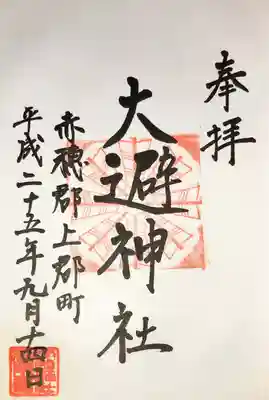 奉拝
大避神社
赤穂郡上郡町
平成二十五年九月十四日